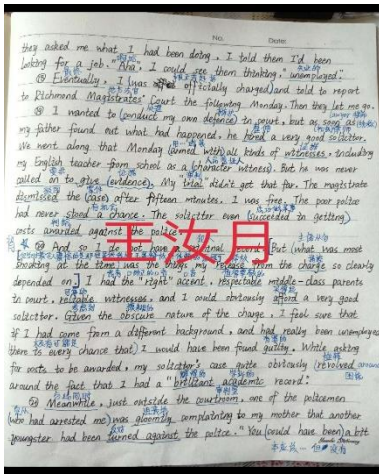 No. Date
they asked me what I had been doing, I told them I'd been
looking for a job. "Aha", I could see them thinking, "unemployed".
⑱ Eventually, I was officially charged and told to report
to Richmond Magistrates' Court the following Monday. Then they let me go.
I wanted to (conduct my own defence) in court, but as soon as
my father found out what had happened, he hired a very good solicitor.
We went along that Monday (armed with) all kinds of witnesses, including
my English teacher from school as a character witness). But he was never
called on to give (evidence). My trial didn't get that far. The magistrate
dismissed the (case) after fifteen minutes. I was free. The poor police
had never stood a chance. The solicitor even (succeeded in getting)
costs awarded against the police.
And so I do not have a criminal record. But (what was most
shocking at the time) was the things my release from the charge so clearly
depended on. I had the "right" accent, respectable middle-class parents
in court, reliable witnesses, and I could obviously afford a very good
solicitor. Given the obscure nature of the charge, I feel sure that
if I had come from a different background, and had really been unemployed
there is every chance that) I would have been found guilty. While asking
for costs to be awarded, my solicitor's case quite obviously (revolved around
around the fact that I had a "brilliant academic record".
Meanwhile, just outside the courtroom, one of the policemen
(who had arrested me) was gloomily complaining to my mother that another
youngster had been turned against the police. "You (could have been) a bit
王汝月